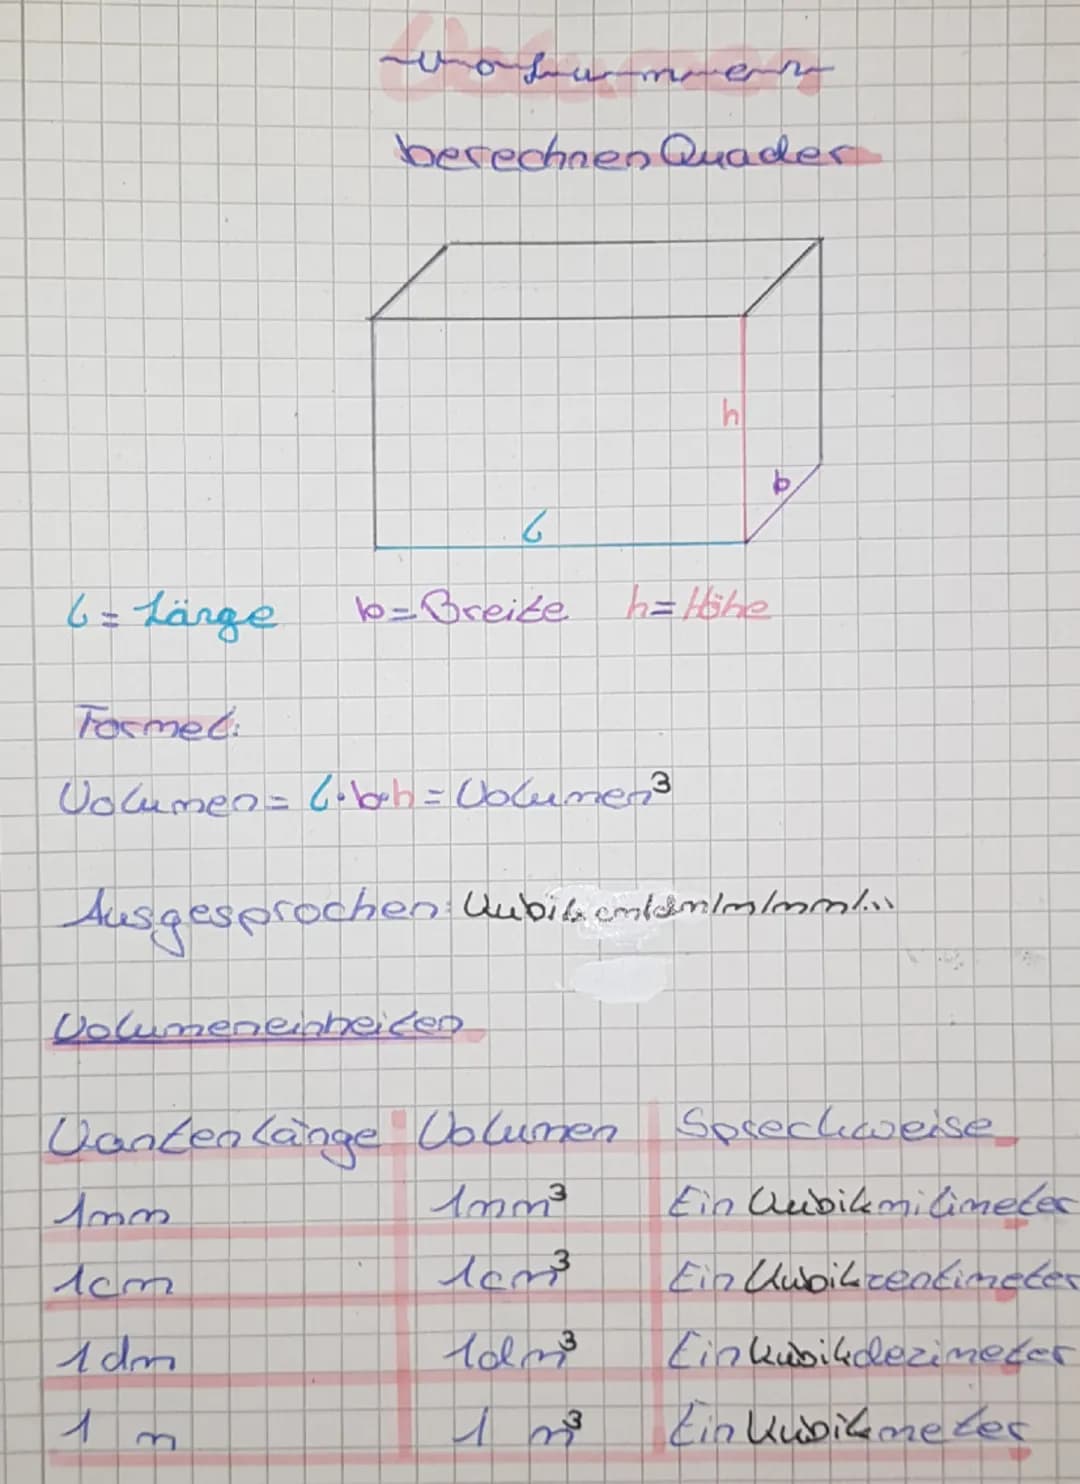 Volumen
berechnen Quader
h
b
l
l = Länge b = Breite h = Höhe
Formel:
Volumen = l · b · h = Volumen³
Ausgesprochen: Kubik cm/dm/m/mm/...
Volumeneinheiten
Kantenlänge Volumen Sprechweise
1mm 1mm³ Ein Kubikmilimeter
1cm 1cm³ Ein Kubikzentimeter
1dm 1dm³ Ein kubikdezimeter
1 m 1 m³ Ein Kubikmeter